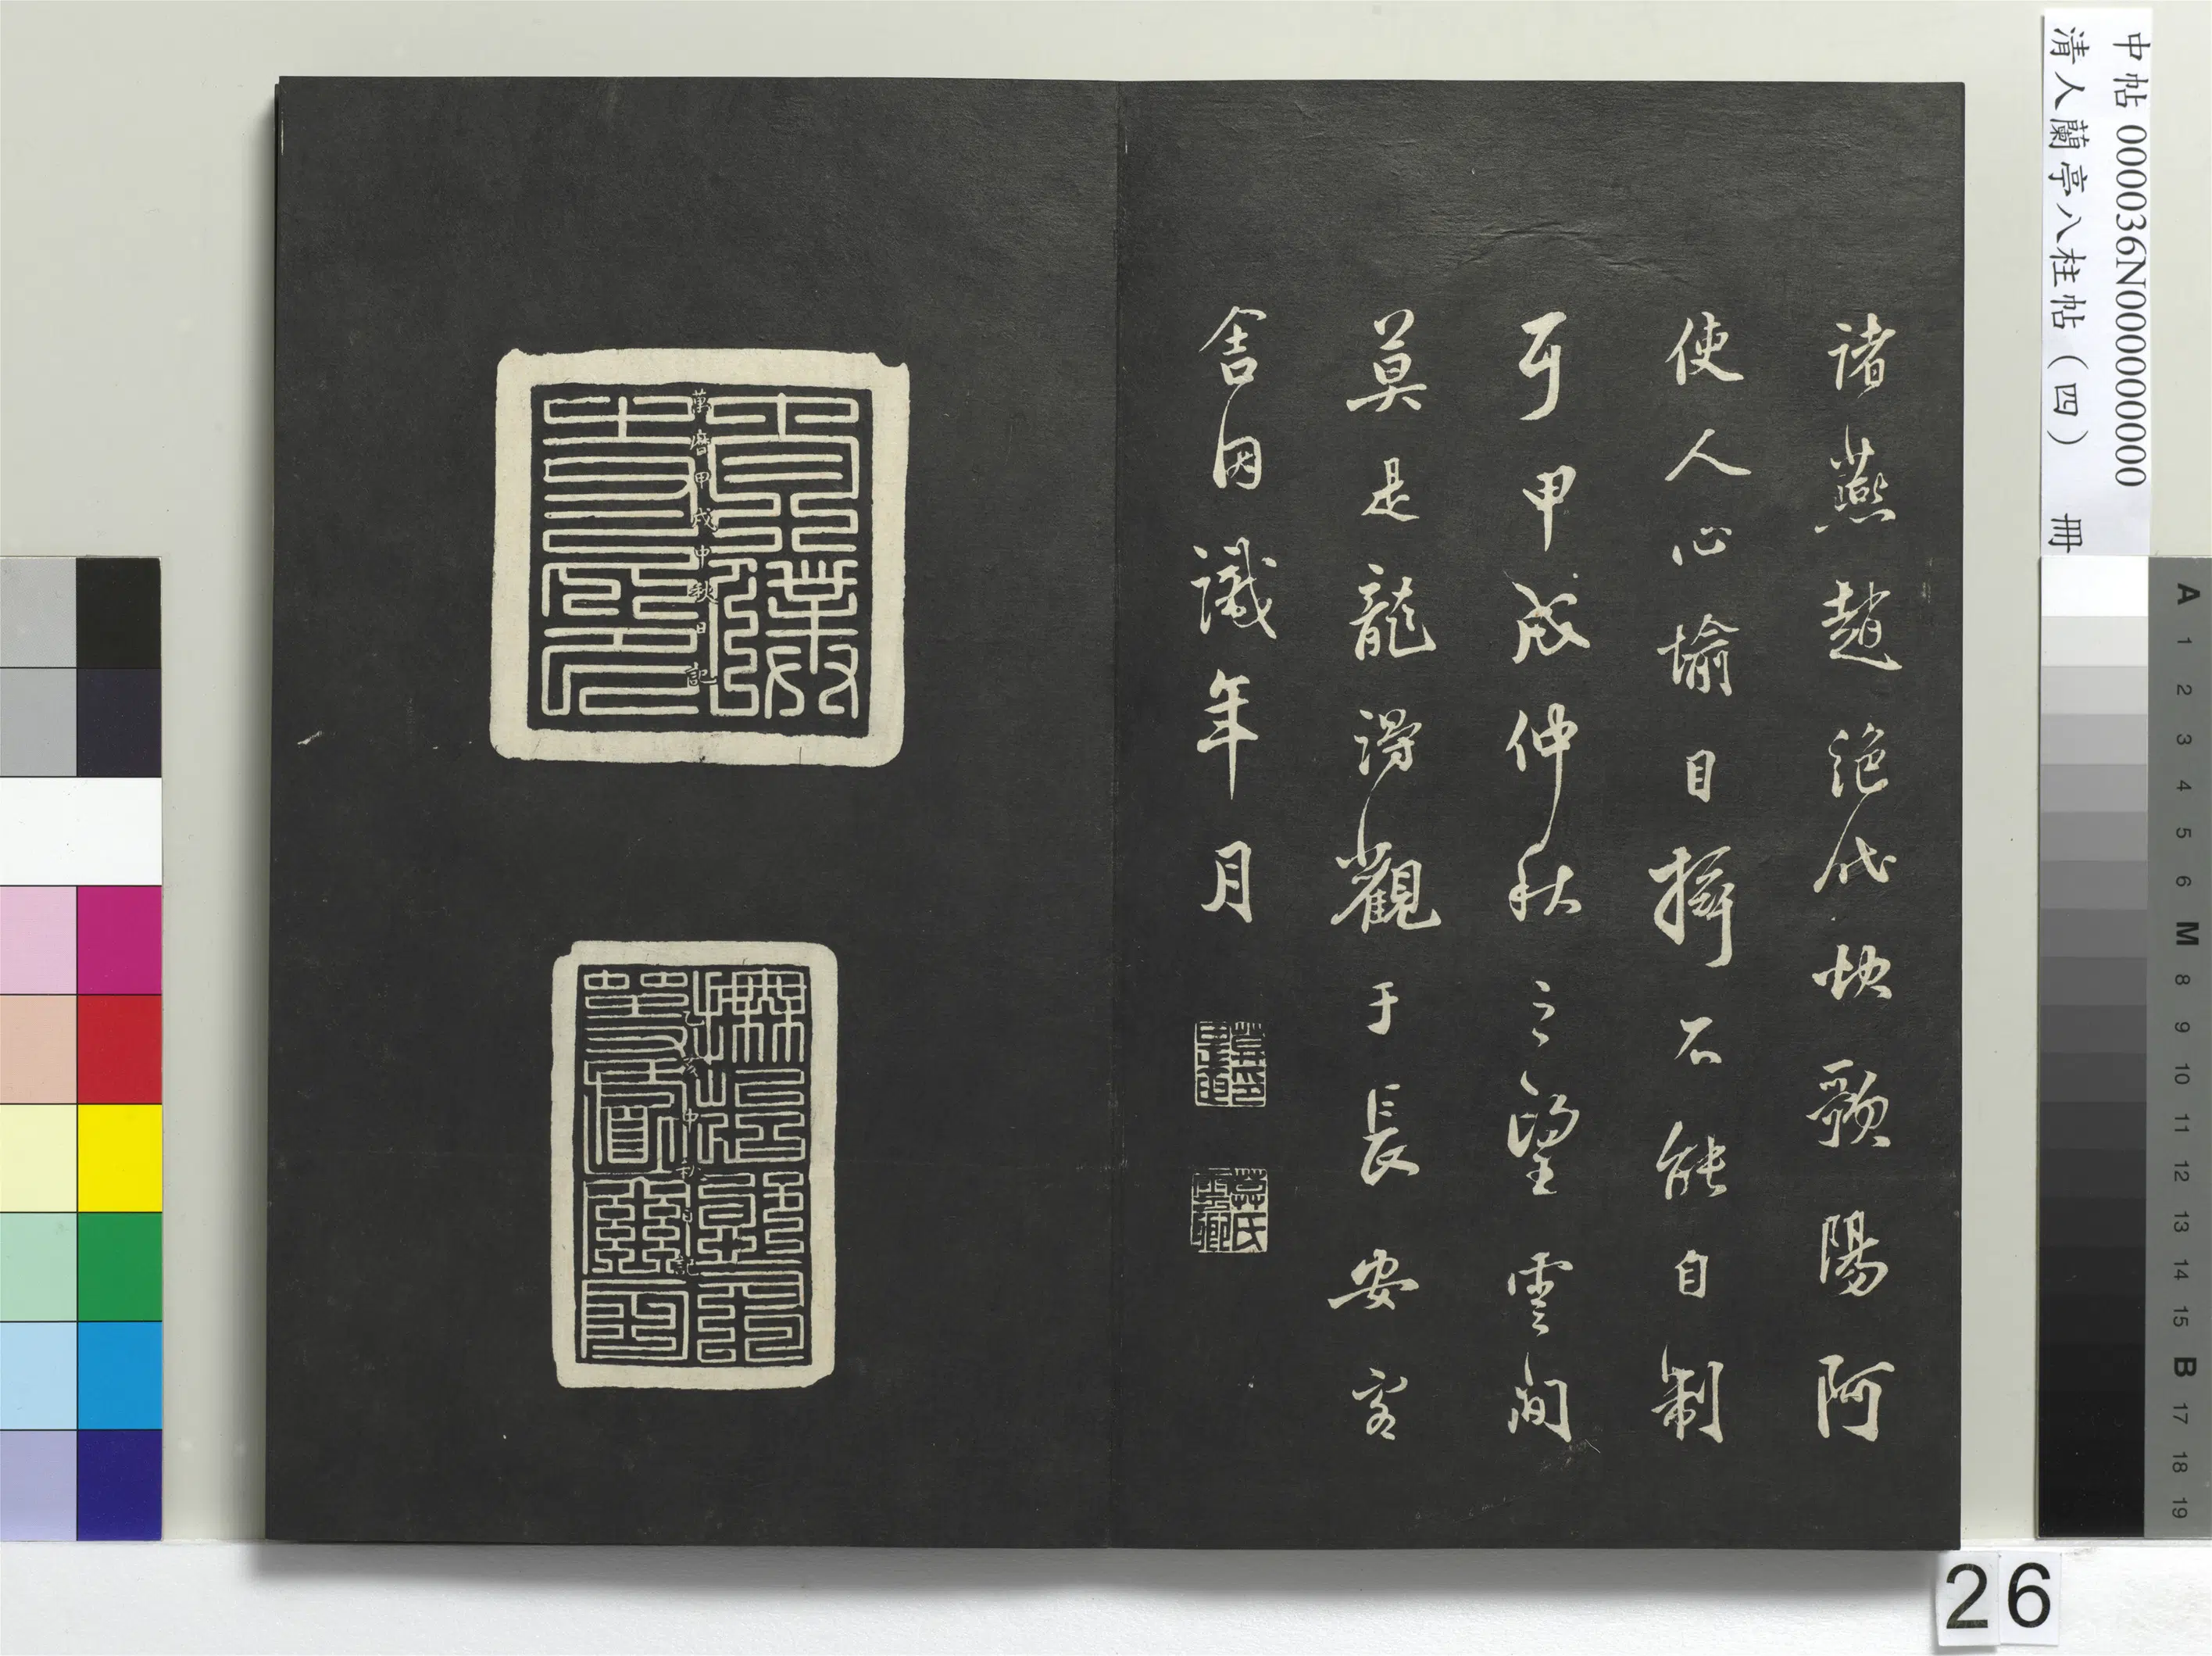 中帖 000036N000000000
清人蘭亭八柱帖（四） 冊
诸燕趙絕代妙歌陽阿
使人心愉目搖不能自制
耳甲戌仲秋之望雲間
莫是龍得觀于長安客
舍因識年月
莫印是龍
莫氏雲卿
萬曆甲戌中秋日記
乙亥中秋日記
A 1 2 3 4 5 6 M 8 9 10 11 12 13 14 15 B 17 18 19
26